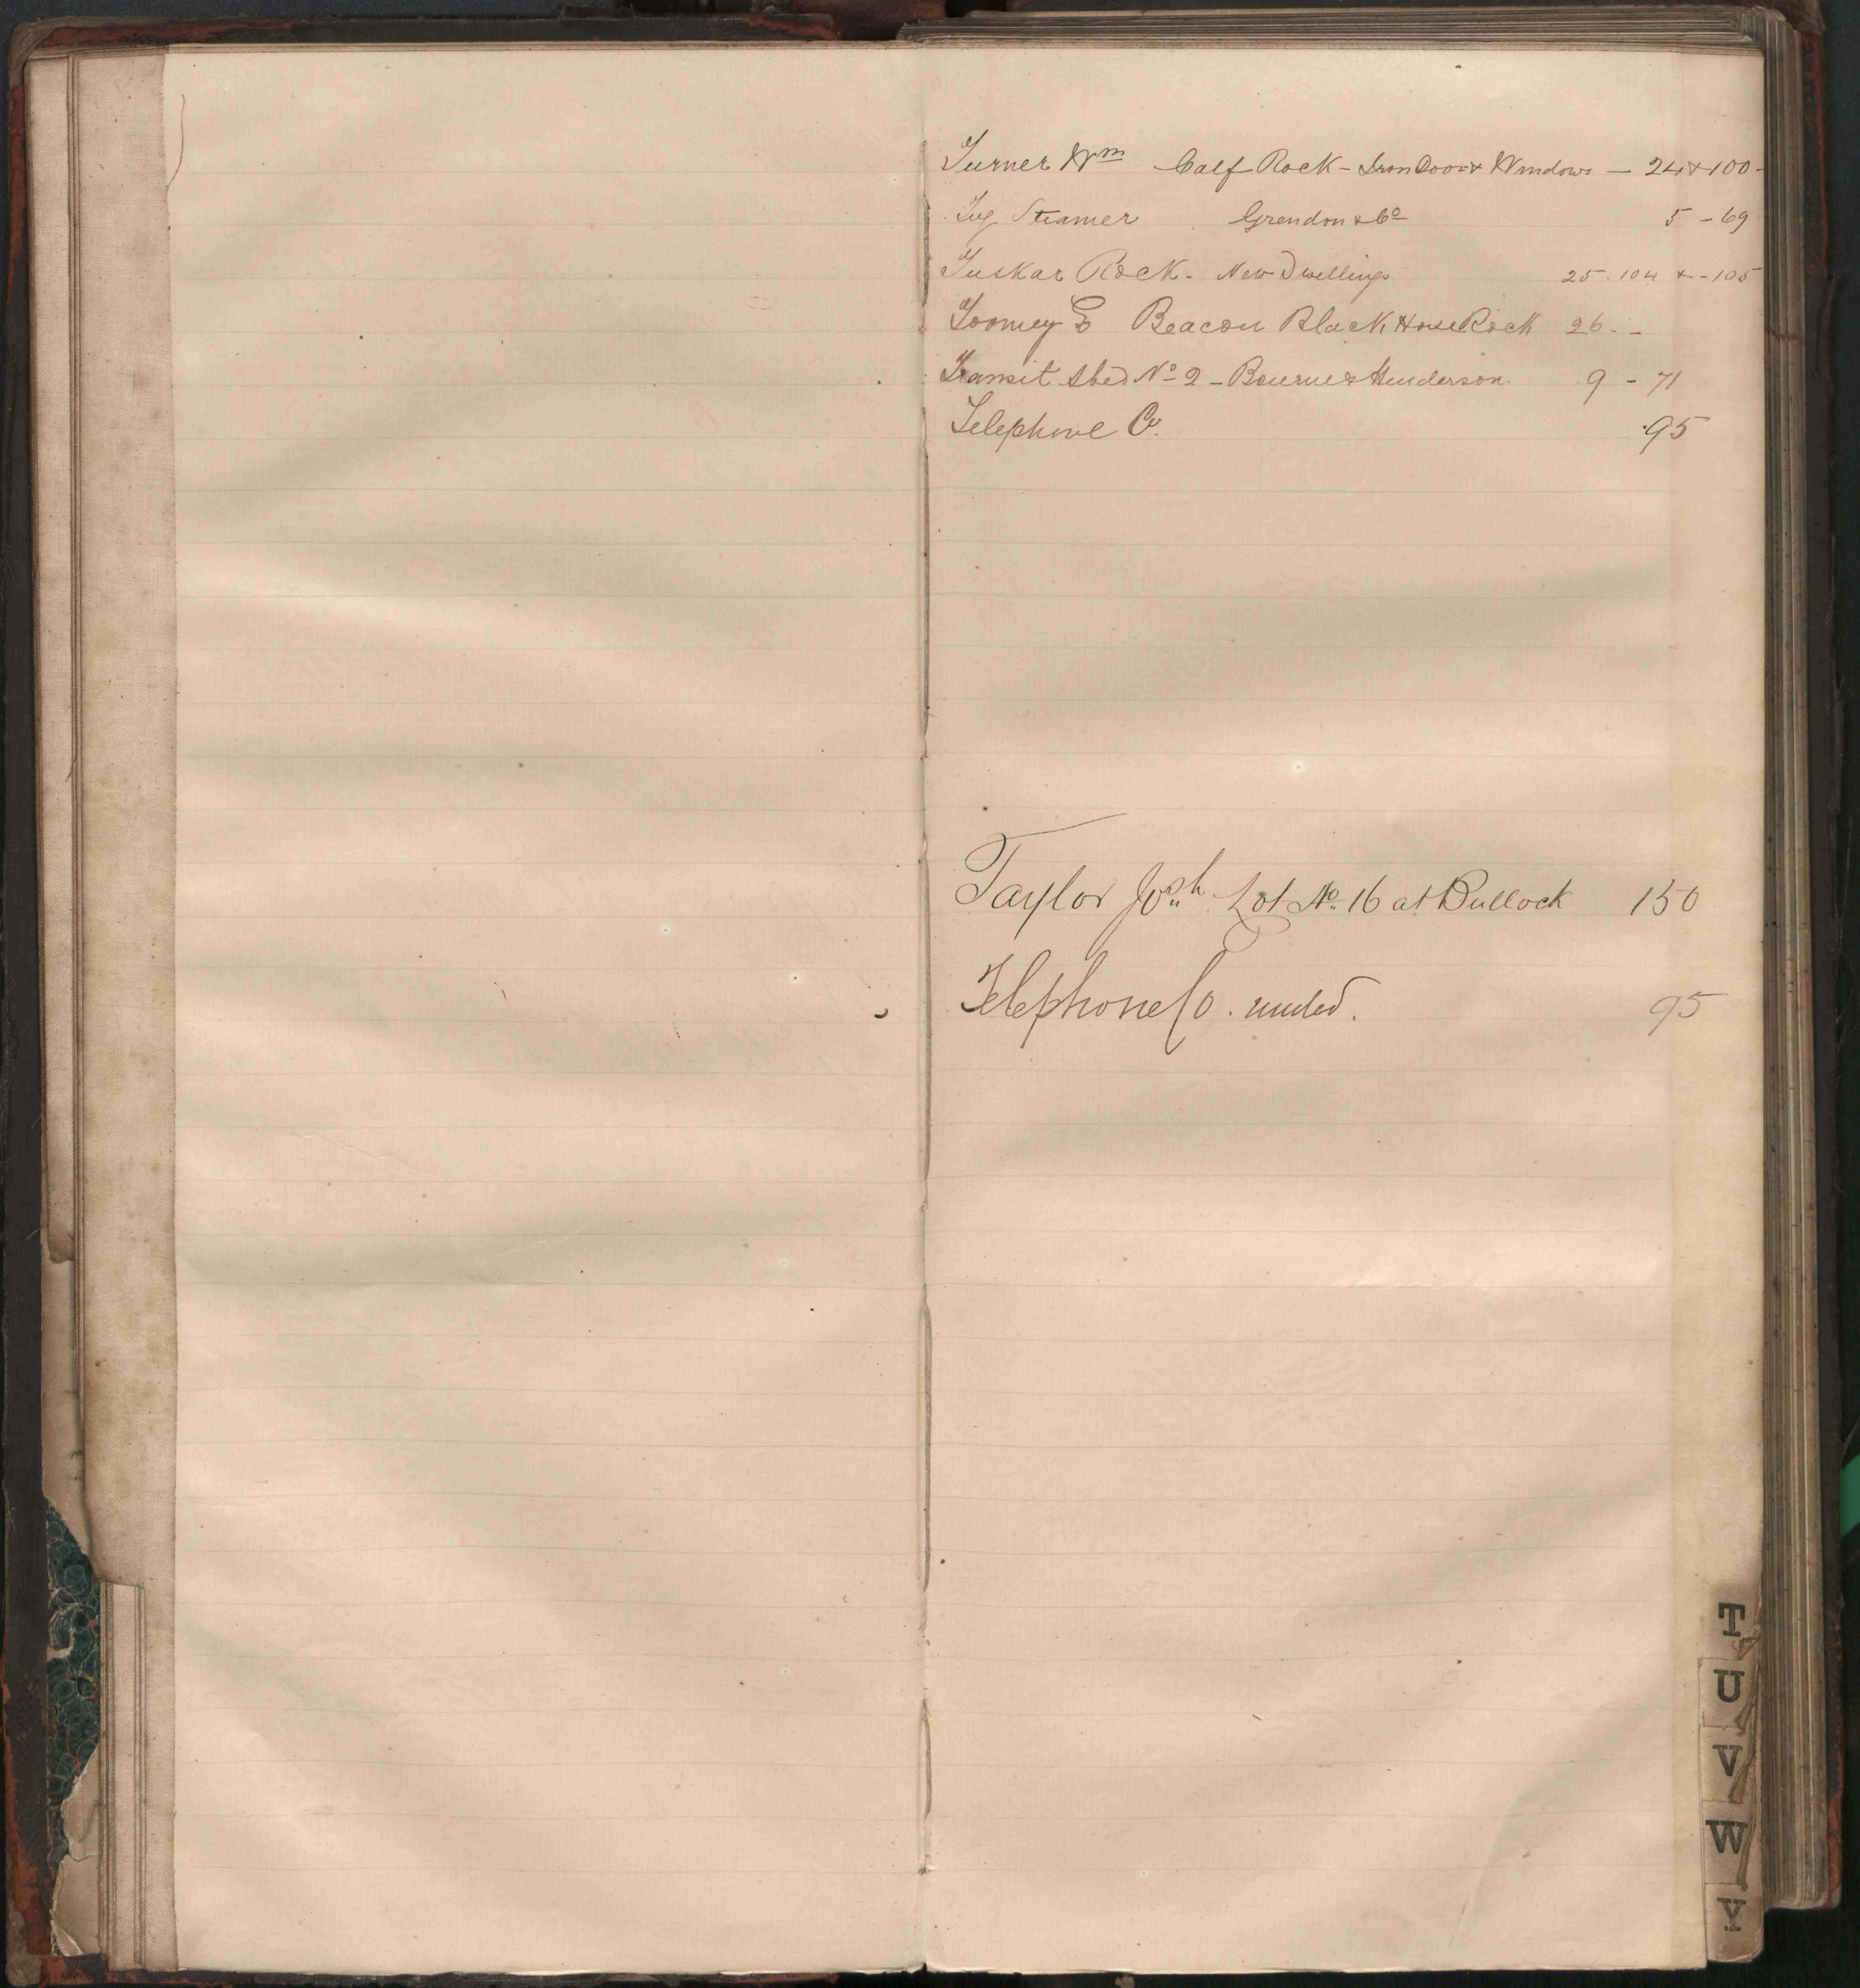 Turner Wm Calf Rock - Iron Doors & Windows - 24 & 100 -
Tug Steamer Grendon & Co 5 - 69
Tuskar Rock - New Dwellings 25. 104 & - 105
Toomey E Beacon Black Horse Rock 26. -
Transit Shed No 2 - Bourne & Henderson. 9 - 71
Telephone Co. 95
Taylor Josh Lot No. 16 at Bullock 150
Telephone Co. united. 95
T
U
V
W
Y